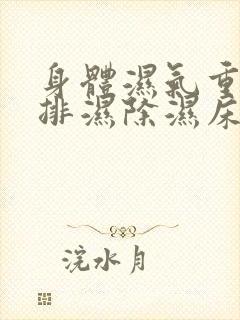 身體濕氣重
排濕除濕尿
浣水月